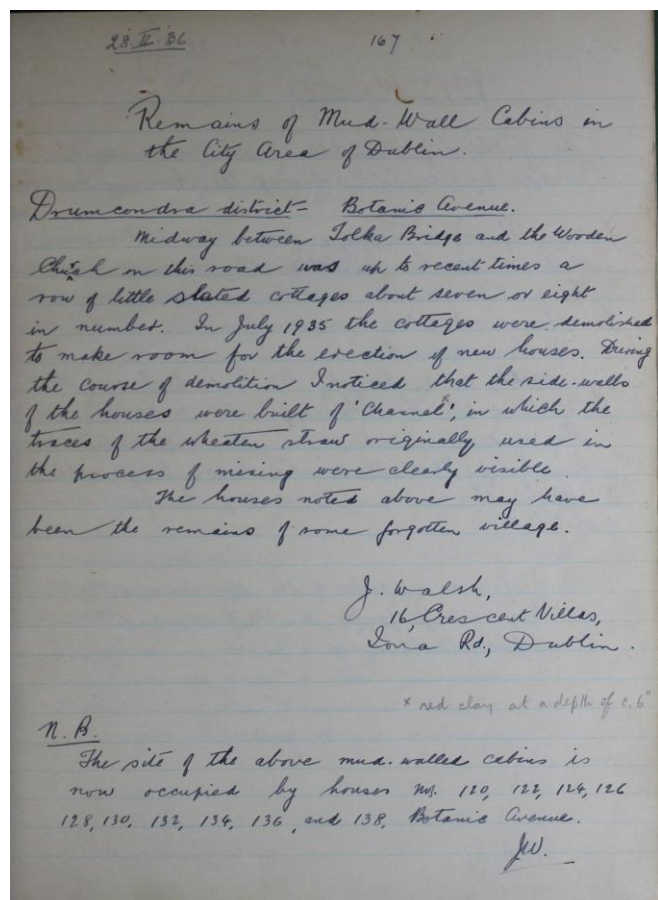 28.II.36
167
Remains of Mud-Wall Cabins in
the City Area of Dublin.
Drumcondra district – Botanic Avenue.
Midway between Tolka Bridge and the Wooden
Church on this road was up to recent times a
row of little slated cottages about seven or eight
in number. In July 1935 the cottages were demolished
to make room for the erection of new houses. During
the course of demolition I noticed that the side-walls
of the houses were built of 'Channel'ˣ, in which the
traces of the wheaten straw originally used in
the process of mixing were clearly visible.
The houses noted above may have
been the remains of some forgotten village.
J. Walsh,
16, Crescent Villas,
Iona Rd., Dublin.
x red clay at a depth of c. 6"
N.B.
The site of the above mud-walled cabins is
now occupied by houses Nos. 120, 122, 124, 126
128, 130, 132, 134, 136, and 138, Botanic Avenue.
JW.